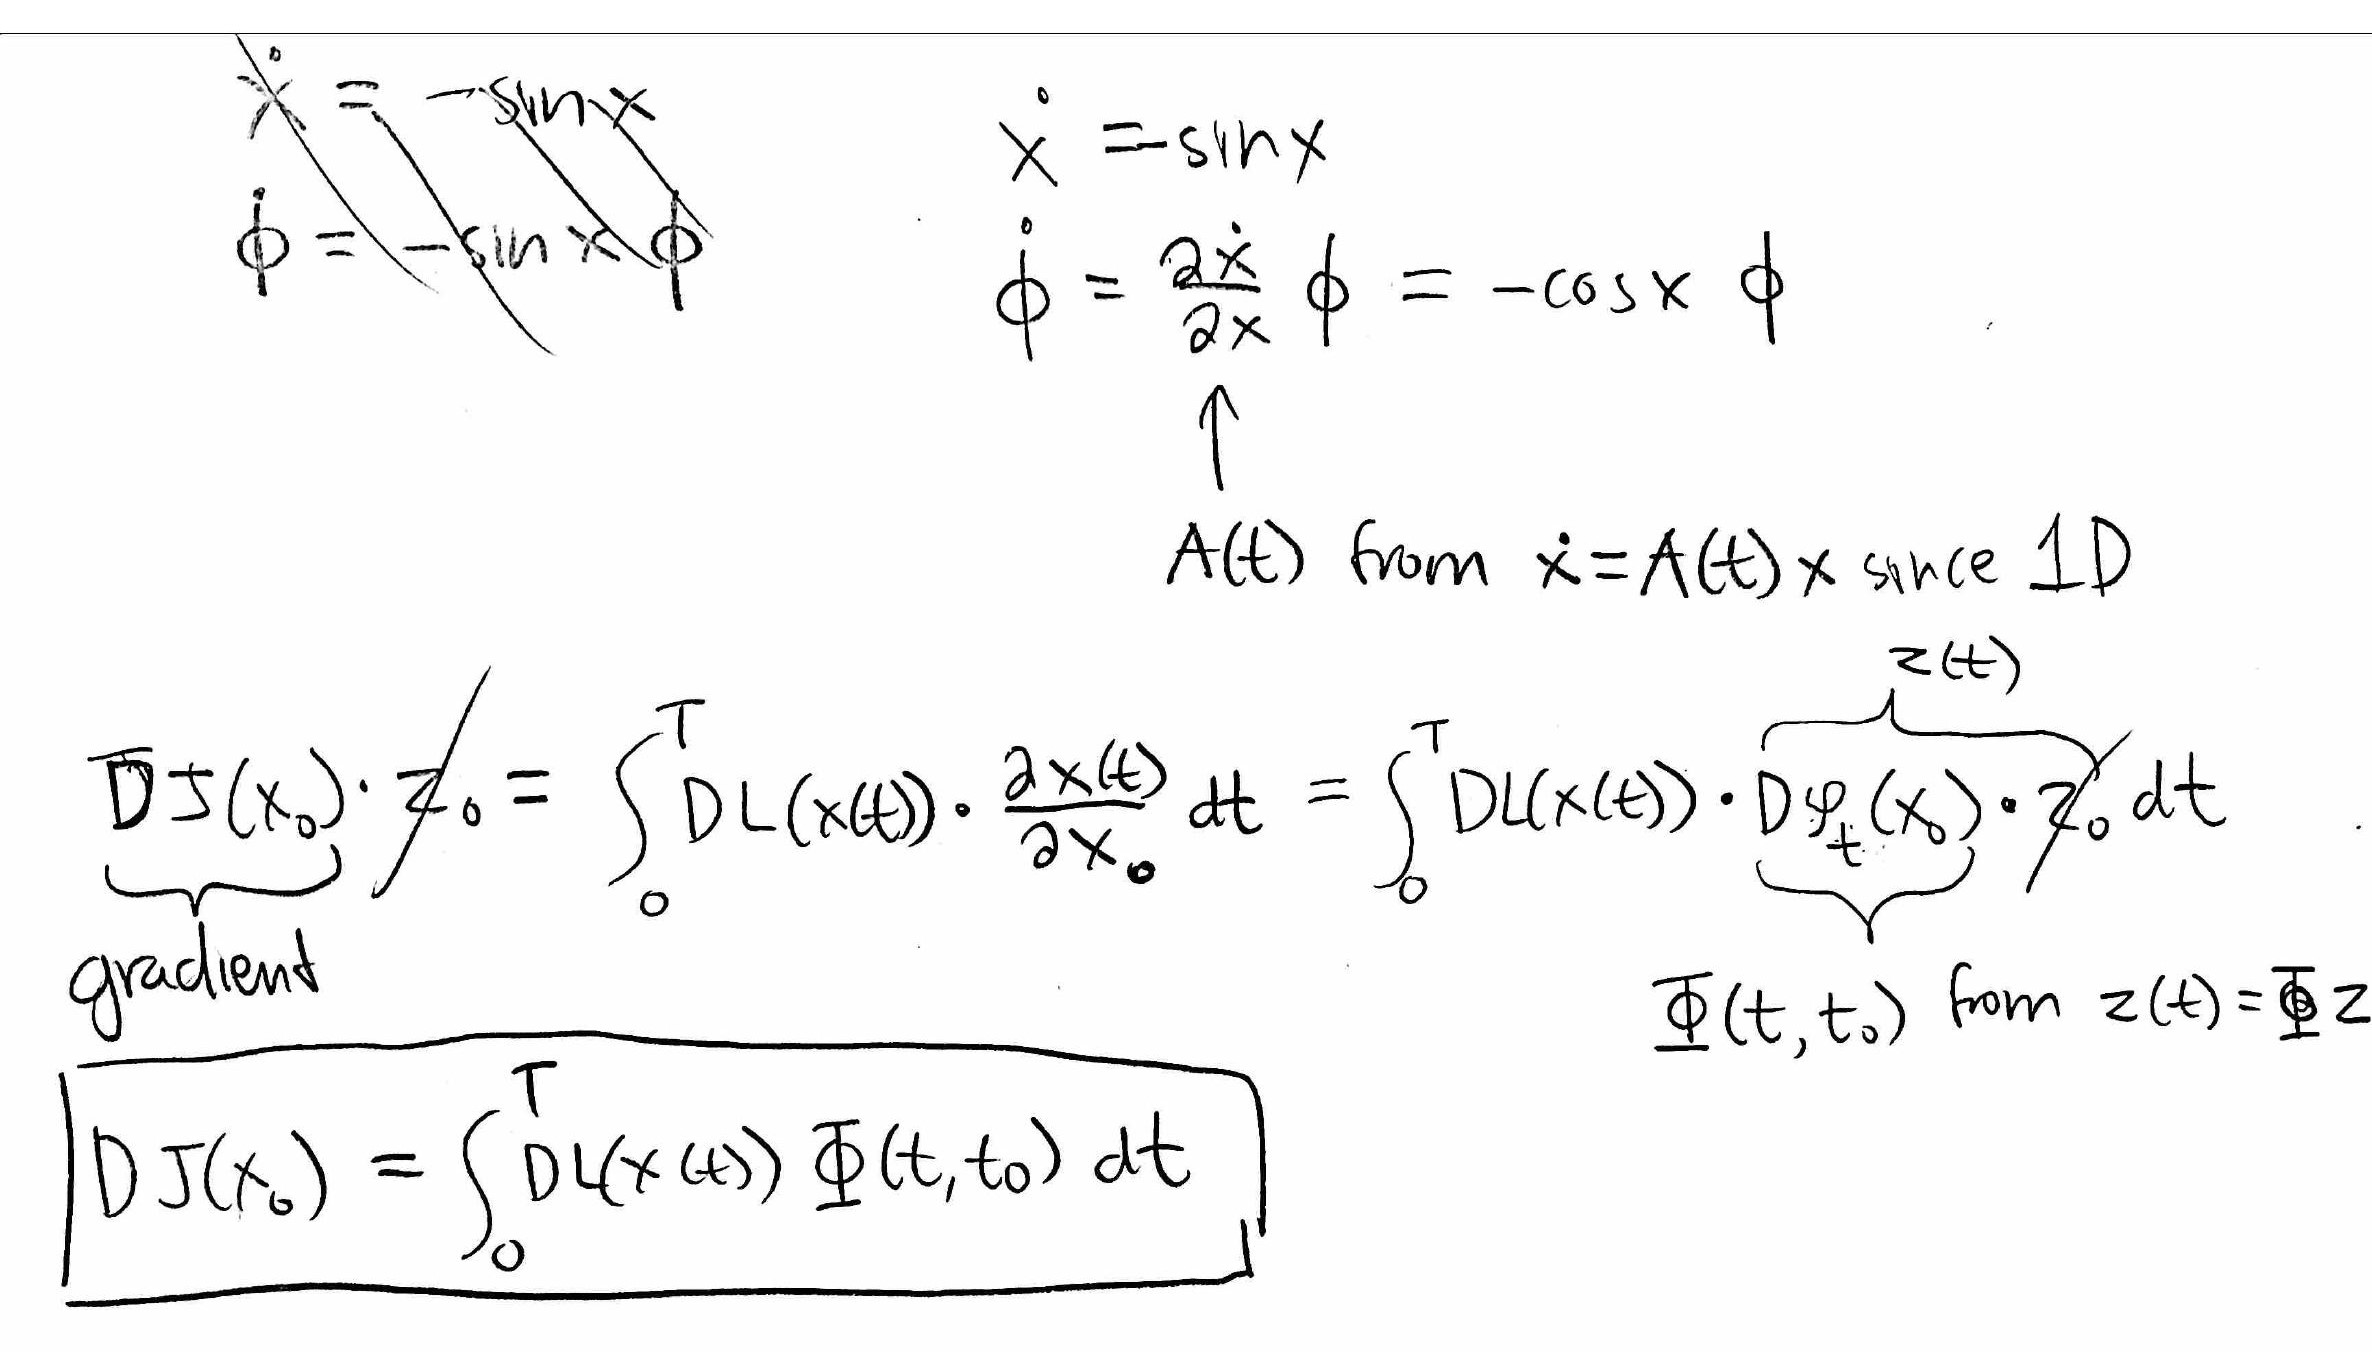 ẋ = -sin x
ϕ̇ = -sin x ϕ
ẋ = -sin x
ϕ̇ = ∂ẋ/∂x ϕ = -cos x ϕ
↑
A(t) from ẋ = A(t) x since 1D
z(t)
DJ(x₀) · z₀ = ∫₀ᵀ DL(x(t)) · ∂x(t)/∂x₀ dt = ∫₀ᵀ DL(x(t)) · Dφₜ(x₀) · z₀ dt
gradient
Φ(t, t₀) from z(t) = Φ z
DJ(x₀) = ∫₀ᵀ DL(x(t)) Φ(t, t₀) dt